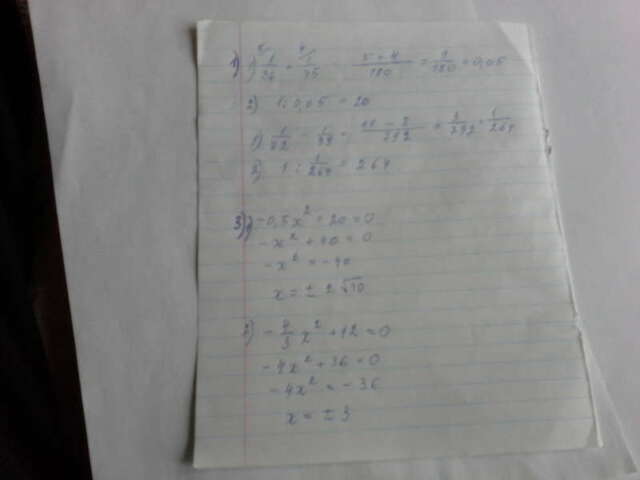 1) 1) 5 1/36 + 4 1/45 = (5+4)/180 = 9/180 = 0,05
2) 1:0,05 = 20
= 1/264
2) 1 : 1/264 = 264
3) 1) -0,5x² + 20 = 0
-x² + 40 = 0
-x² = -40
x = ± 2√10
2) -4/3 x² + 12 = 0
-4x² + 36 = 0
-4x² = -36
x = ± 3